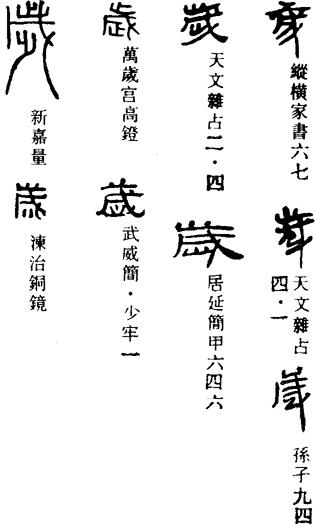 歲
縱横家書六七
歲
天文雜占
四·一
歲
孫子九四
歲
天文雜占二·四
歲
居延簡甲六四六
歲
萬歲宮高鐙
歲
武威簡·少牢一
歲
新嘉量
歲
湅治銅鏡